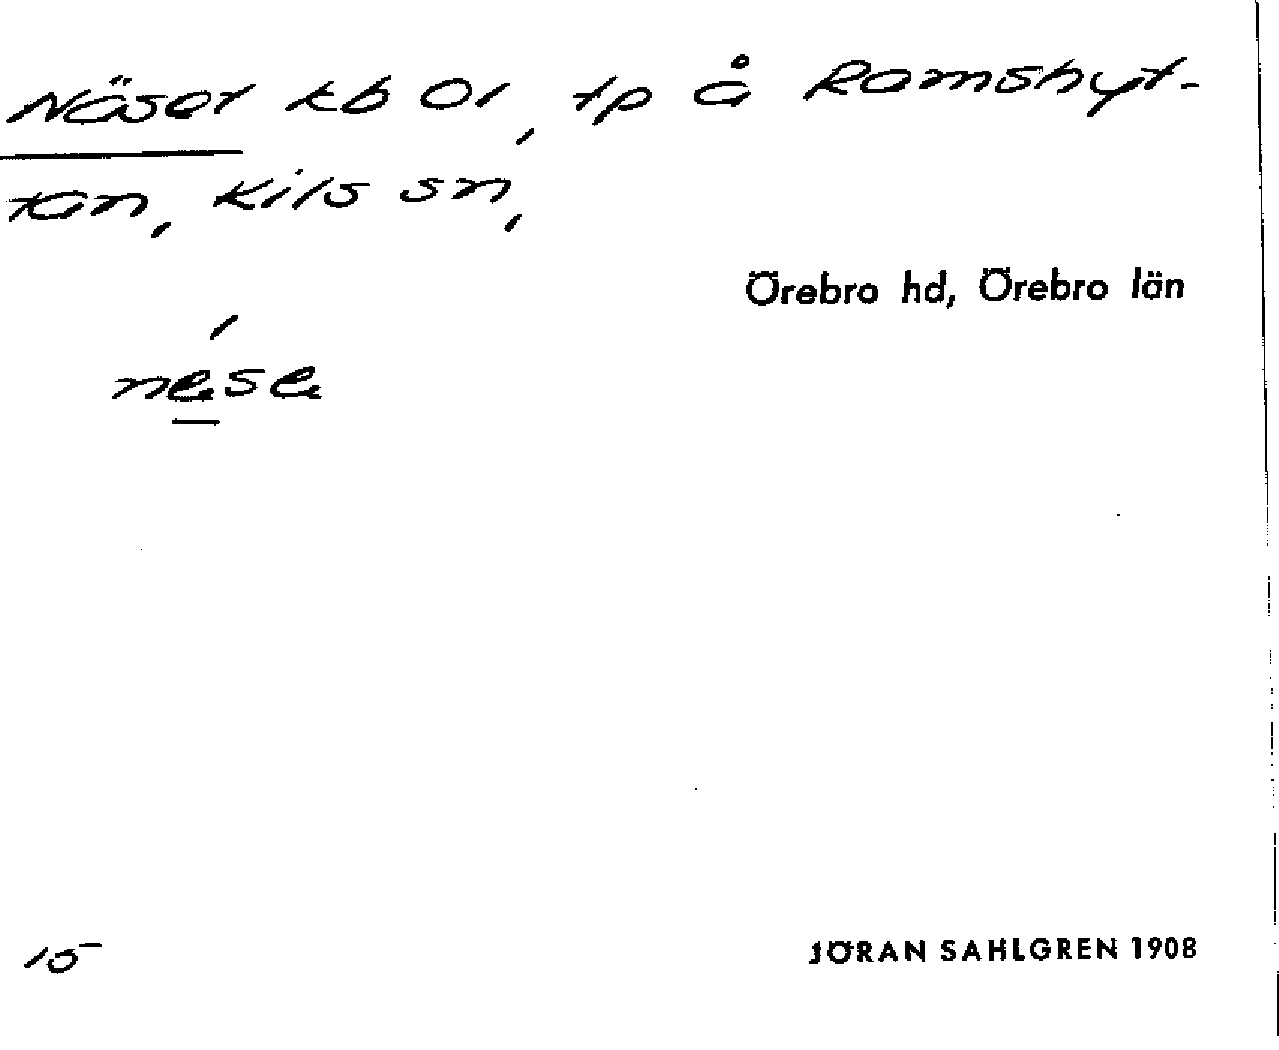 Näset kb Ol, tp å Ramshyt-
tan, Kils sn,
Örebro hd, Örebro län
nése
15
JÖRAN SAHLGREN 1908